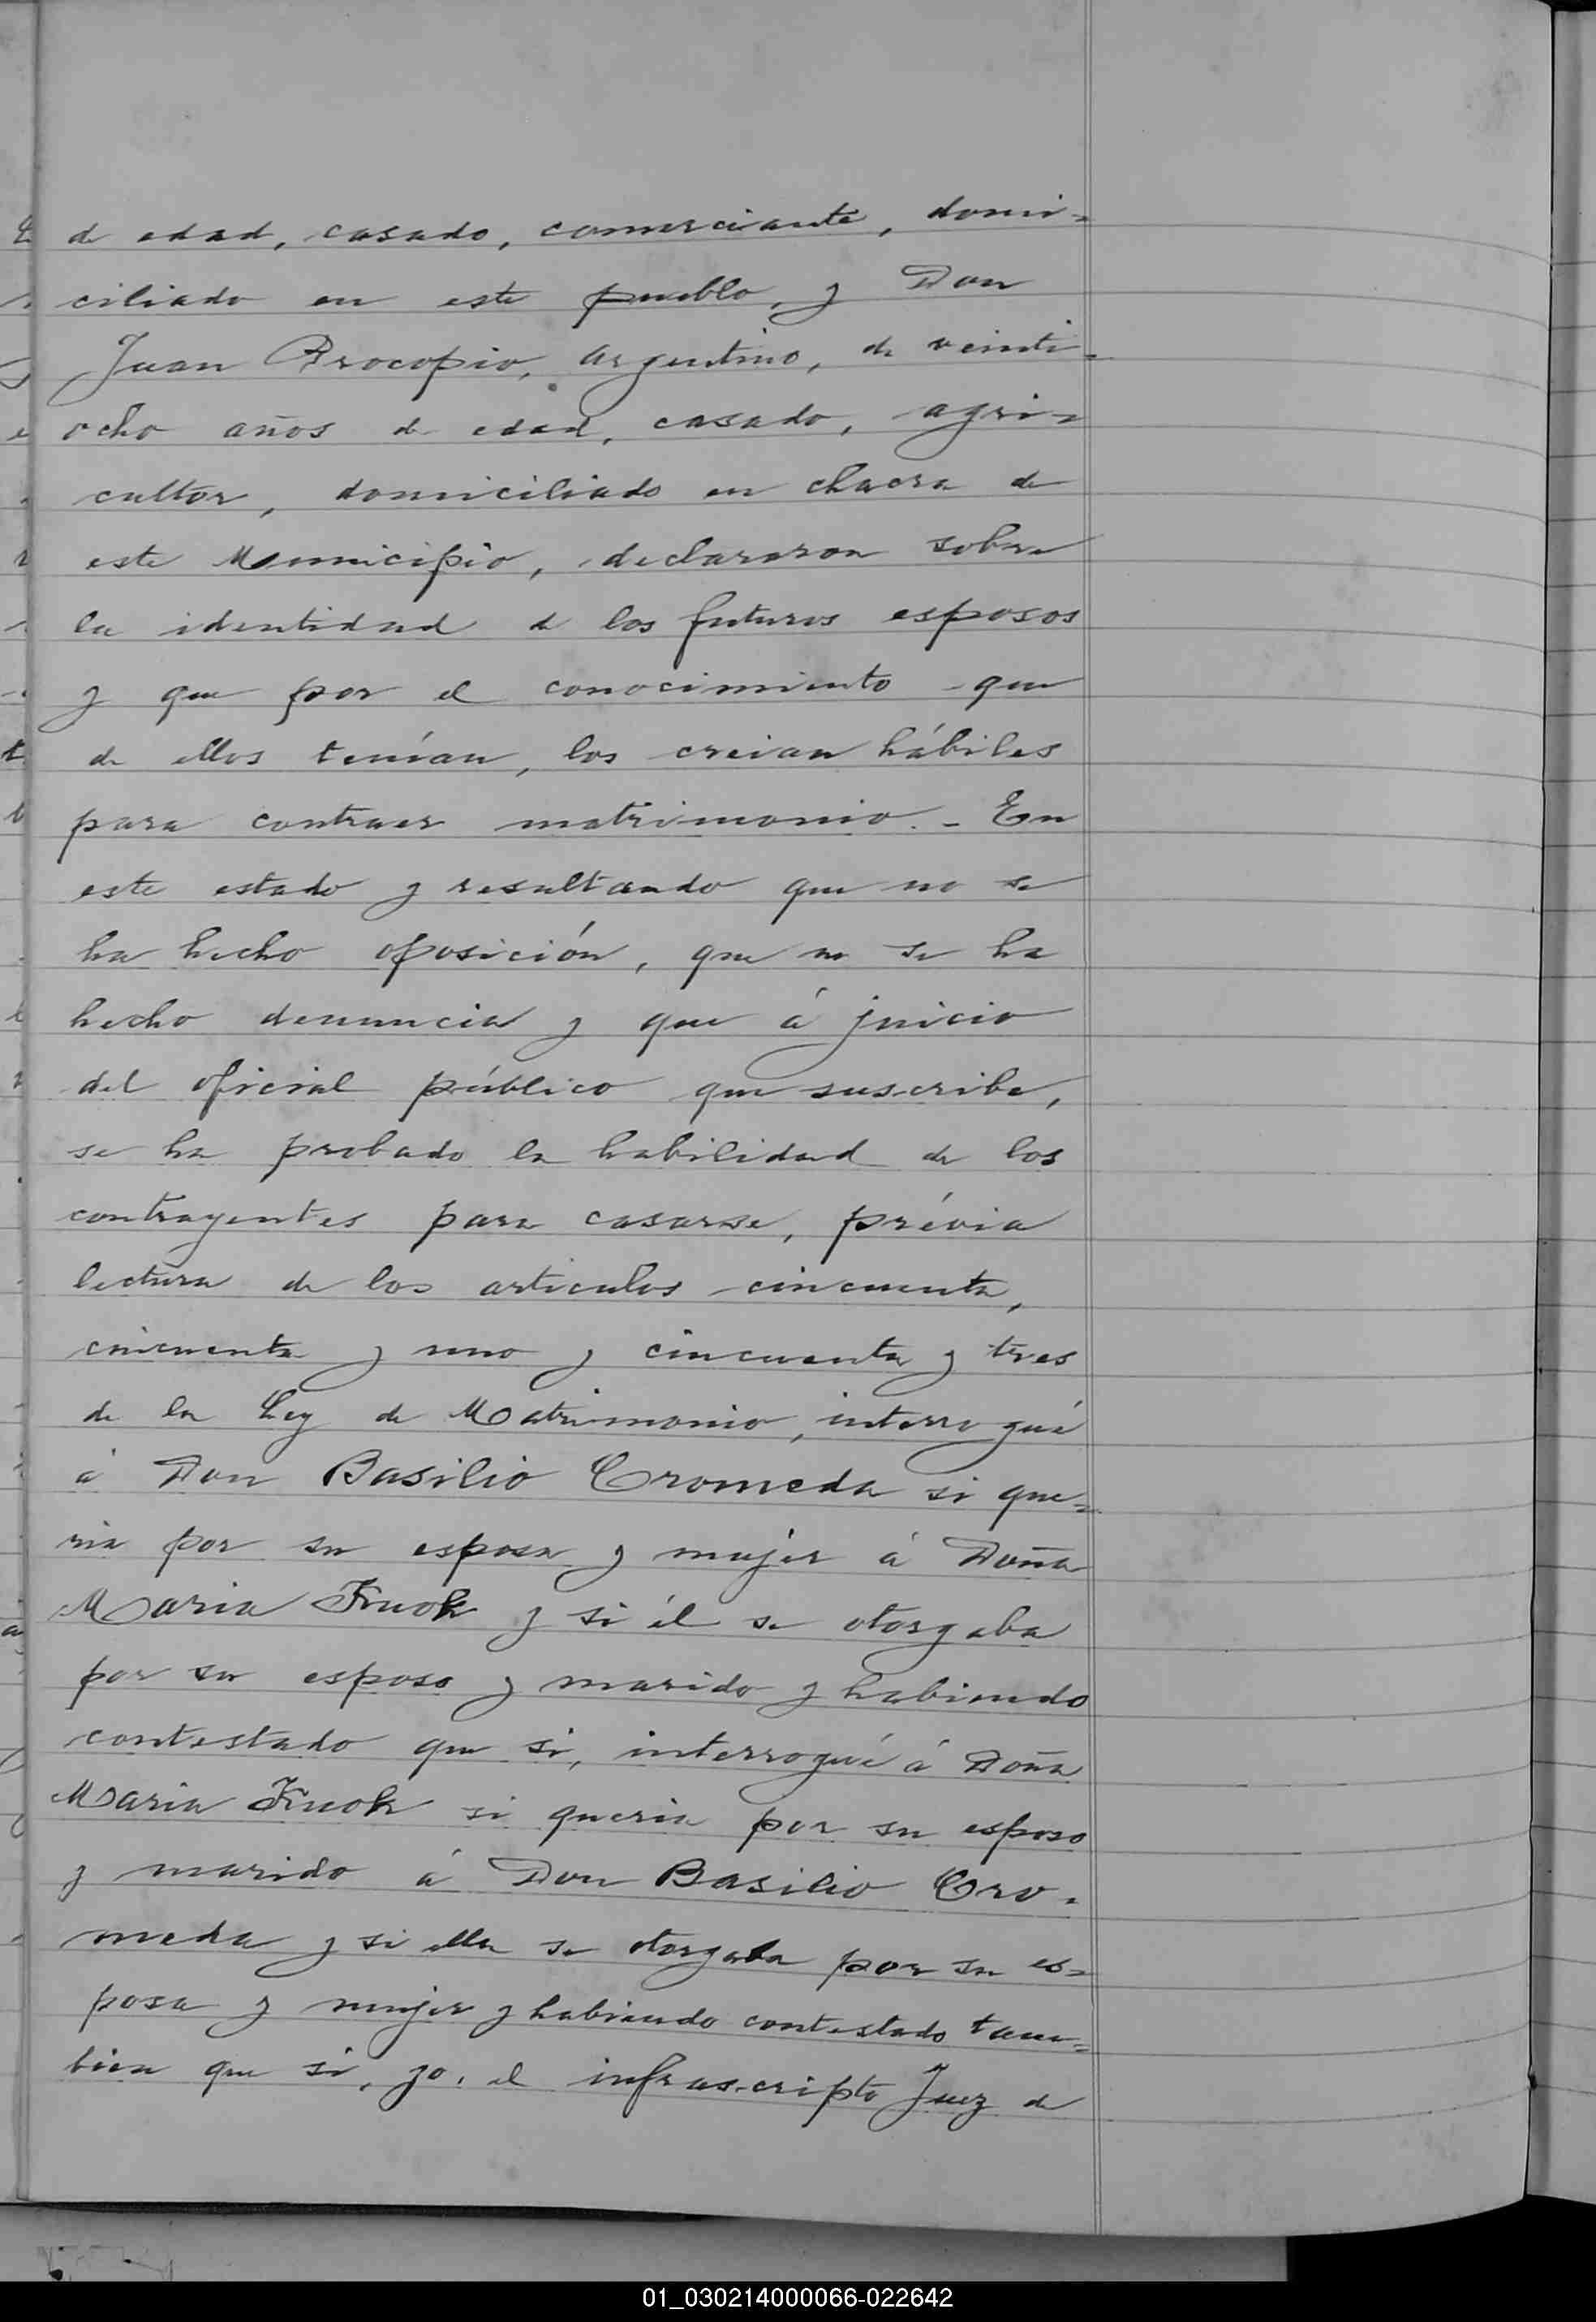 de edad, casado, comerciante, domi=
ciliado en este pueblo, y Don
Juan Procopio, argentino, de veinti=
ocho años de edad, casado, agri=
cultor, domiciliado en chacra de
este Municipio, declararon sobre
la identidad de los futuros esposos
y que por el conocimiento que
de ellos tenían, los creian hábiles
para contraer matrimonio.- En
este estado y resultando que no se
ha hecho oposición, que no se ha
hecho denuncia y que á juicio
del oficial público que suscribe,
se ha probado la habilidad de los
contrayentes para casarse, prévia
lectura de los articulos cincuenta,
cincuenta y uno y cincuenta y tres
de la Ley de Matrimonio, interrogué
á Don Basilio Cromeda si que=
ria por su esposa y mujer á Doña
Maria Knoh y si él se otorgaba
por su esposo y marido y habiendo
contestado que si, interrogué á Doña
Maria Knoh si queria por su esposo
y marido á Don Basilio Cro=
meda y si ella se otorgaba por su es=
posa y mujer y habiendo contestado tam=
bien que si, yo, el infrascripto Juez de
01_030214000066-022642